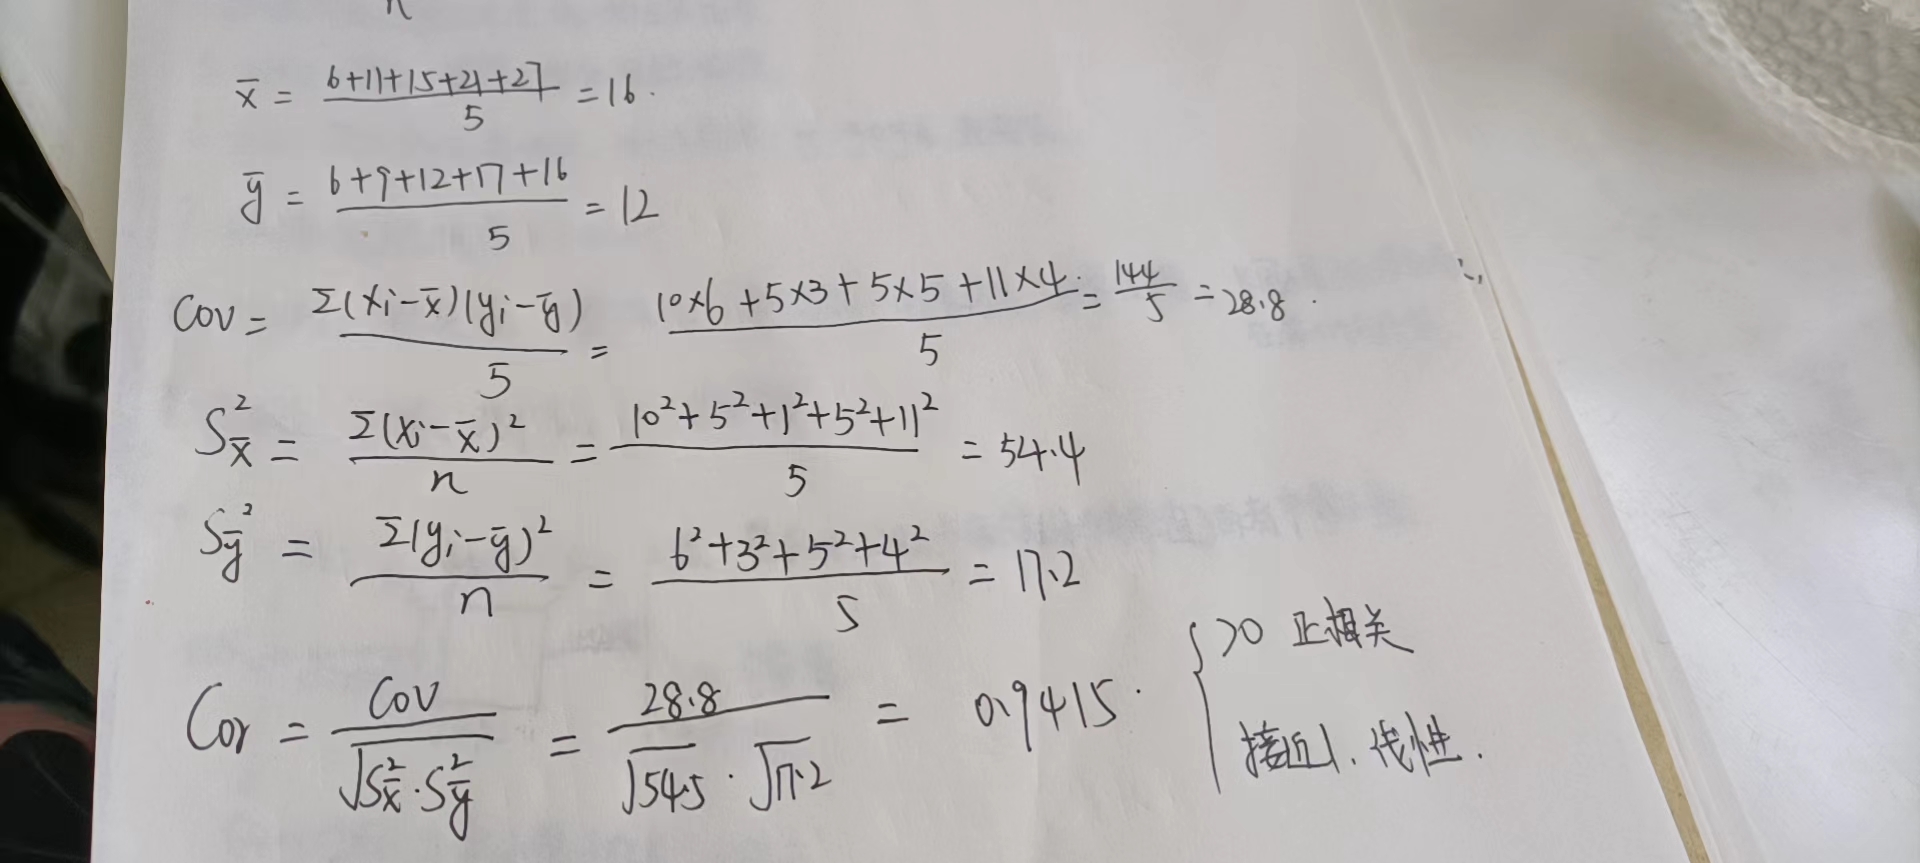 n
x̄ = (6+11+15+21+27)/5 = 16.
ȳ = (6+9+12+17+16)/5 = 12
Cov = Σ(xi-x̄)(yi-ȳ)/5 = (10×6+5×3+5×5+11×4)/5 = 144/5 = 28.8.
S²x̄ = Σ(xi-x̄)²/n = (10²+5²+1²+5²+11²)/5 = 54.4
Sȳ² = Σ(yi-ȳ)²/n = (6²+3²+5²+4²)/5 = 17.2
Cor = Cov/√(S²x̄·S²ȳ) = 28.8/(√54.5·√17.2) = 0.9415.
{ >0 正相关
接近1. 线性.